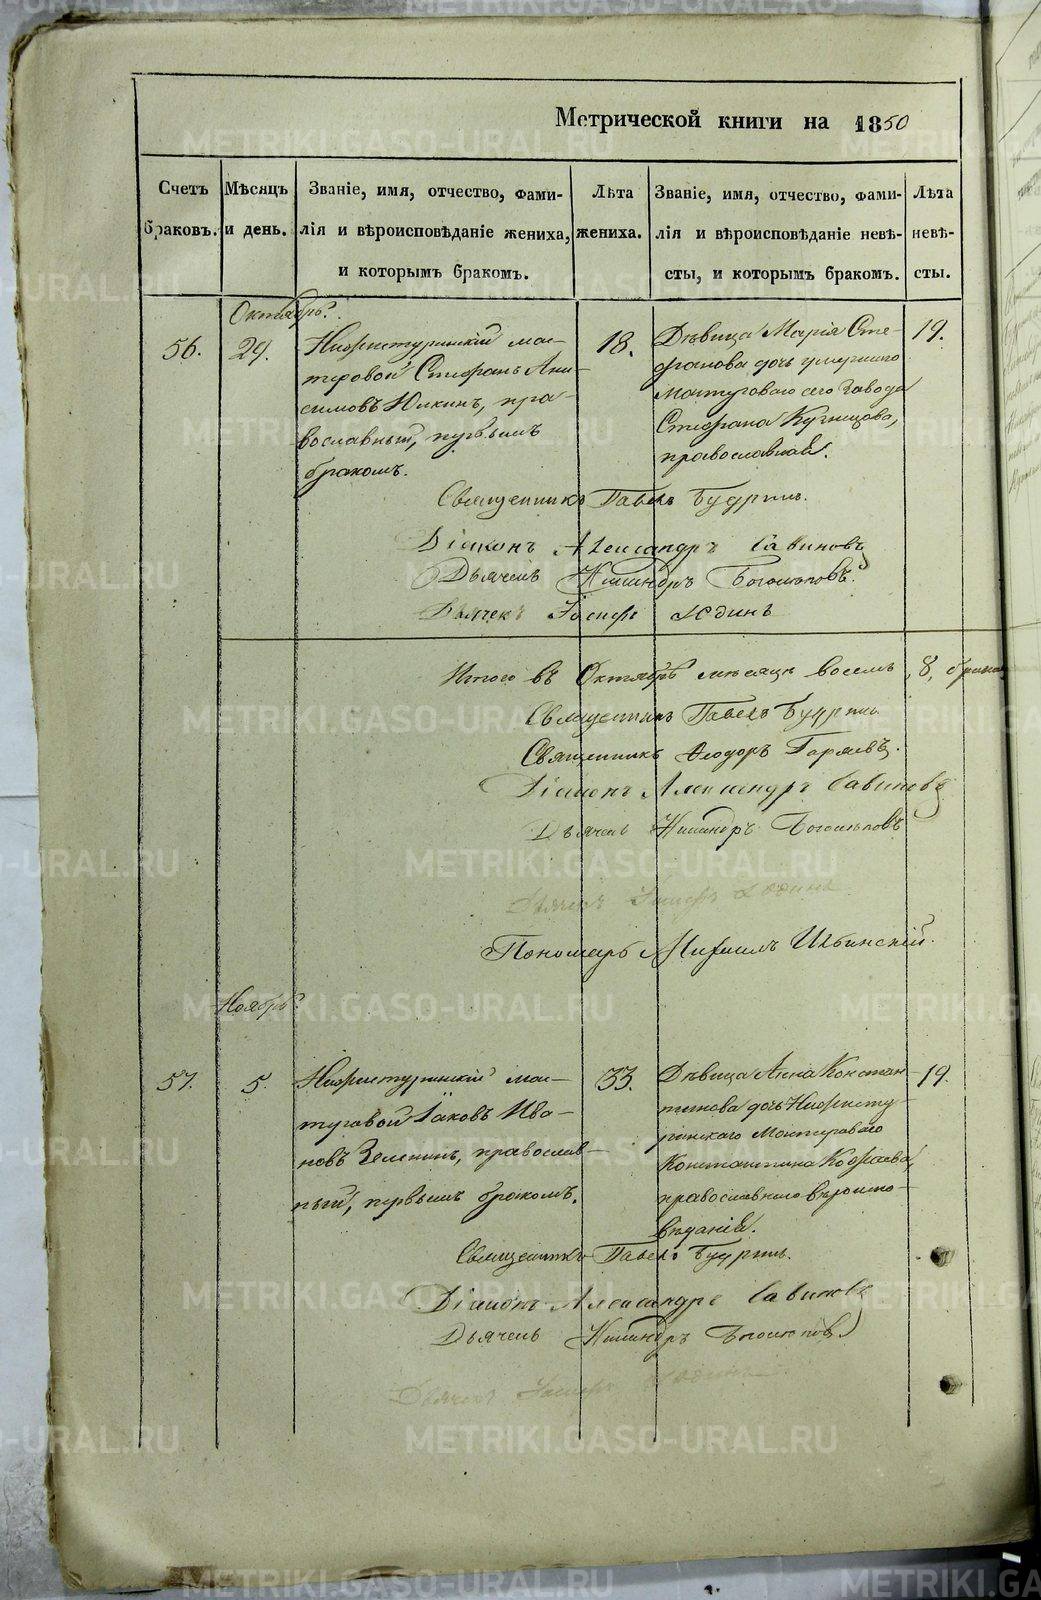 Метрической книги на 1850
Счетъ браковъ.
Мѣсяцъ и день.
Званіе, имя, отчество, фами-
лія и вѣроисповѣданіе жениха,
и которымъ бракомъ.
Лѣта жениха.
Званіе, имя, отчество, фами-
лія и вѣроисповѣданіе невѣ-
сты, и которымъ бракомъ.
Лѣта невѣ-
сты.
Октябрь.
56.
29.
Нижнетуринскій мас-
теровой Стефанъ Ани-
симовъ Юкинъ, пра-
вославный, первымъ
бракомъ.
18.
Дѣвица Марія Сте-
фанова дочь умершаго
мастероваго сего завода
Стефана Кузнецова,
православная.
19.
Священникъ Павелъ Будринъ.
Діаконъ Александръ Савиновъ
Дьячекъ Никандръ Богослововъ
Дьячекъ Іосифъ Юдинъ
Итого въ Октябрѣ мѣсяцѣ восемь, 8, браковъ
Священникъ Павелъ Будринъ
Священникъ Ѳеодоръ Горяевъ.
Діаконъ Александръ Савиновъ
Дьячекъ Никандръ Богослововъ
Дьячекъ Іосифъ Юдинъ
Пономарь Михаилъ Ишбинскій.
Ноябрь.
57.
5.
Нижнетуринскій мас-
теровой Іаковъ Ива-
новъ Зеленинъ, православ-
ный, первымъ бракомъ.
33.
Дѣвица Анна Констан-
тинова дочь Нижнету-
ринскаго мастероваго
Константина
православнаго вѣроиспо-
вѣданія.
19.
Священникъ Павелъ Будринъ.
Діаконъ Александръ Савиновъ
Дьячекъ Никандръ Богослововъ
Дьячекъ Іосифъ Юдинъ
METRIKI.GASO-URAL.RU